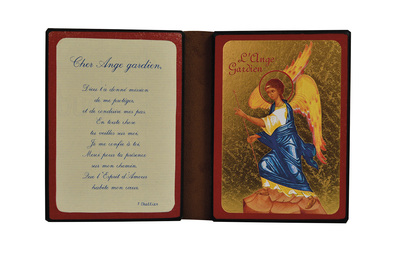 Cher Ange gardien,
Dieu t'a donné mission
de me protéger
et de conduire mes pas.
En toute chose
tu veilles sur moi.
Je me confie à toi.
Merci pour ta présence
sur mon chemin.
Que l'Esprit d'Amour
habite mon cœur.
L'Ange
Gardien